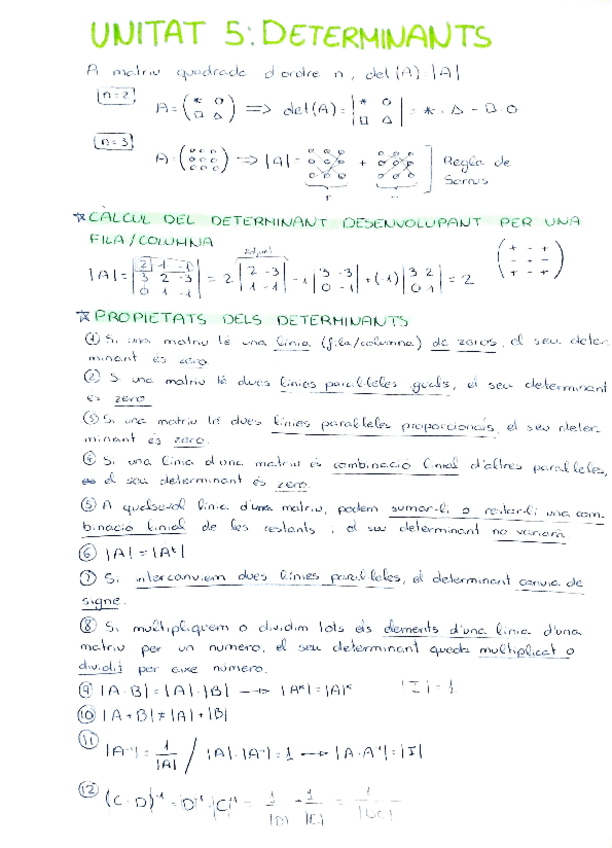 UNITAT 5: DETERMINANTS
A matriu quadrada d'ordre n, det(A)=|A|
n=2
A=(* O / □ Δ) => det(A)=|* O / □ Δ| = * · Δ - □ · O
n=3
A=(o o o / o o o / o o o) => |A|= + Regla de
Sarrus
☆CÀLCUL DEL DETERMINANT DESENVOLUPANT PER UNA
FILA/COLUMNA
(+ - + / - + - / + - +)
adjunt
|A|=|2 1 -1 / 3 2 -3 / 0 1 -1| = 2 |2 -3 / 1 -1| -1 |3 -3 / 0 -1| +(-1) |3 2 / 0 1| = 2
☆PROPIETATS DELS DETERMINANTS
① Si una matriu té una línia (fila/columna) de zeros, el seu deter-
minant és zero
② Si una matriu té dues línies paral·leles iguals, el seu determinant
és zero
③ Si una matriu té dues línies paral·leles proporcionals, el seu deter-
minant és zero.
④ Si una línia d'una matriu és combinació linial d'altres paral·leles,
el seu determinant és zero.
⑤ A qualsevol línia d'una matriu, podem sumar-li o restar-li una com-
binació linial de les restants i el seu determinant no variarà
⑥ |A|=|Aᵗ|
⑦ Si intercanviem dues línies paral·leles, el determinant canvia de
signe.
⑧ Si multipliquem o dividim tots els elements d'una línia d'una
matriu per un número, el seu determinant queda multiplicat o
dividit per aixe número.
⑨ |A·B|=|A|·|B| → |Aᴷ|=|A|ᴷ |I|=1
⑩ |A+B|≠|A|+|B|
⑪ |A⁻¹|=1/|A| / |A|·|A⁻¹|=1 → |A·A⁻¹|=|I|
⑫ (C·D)⁻¹